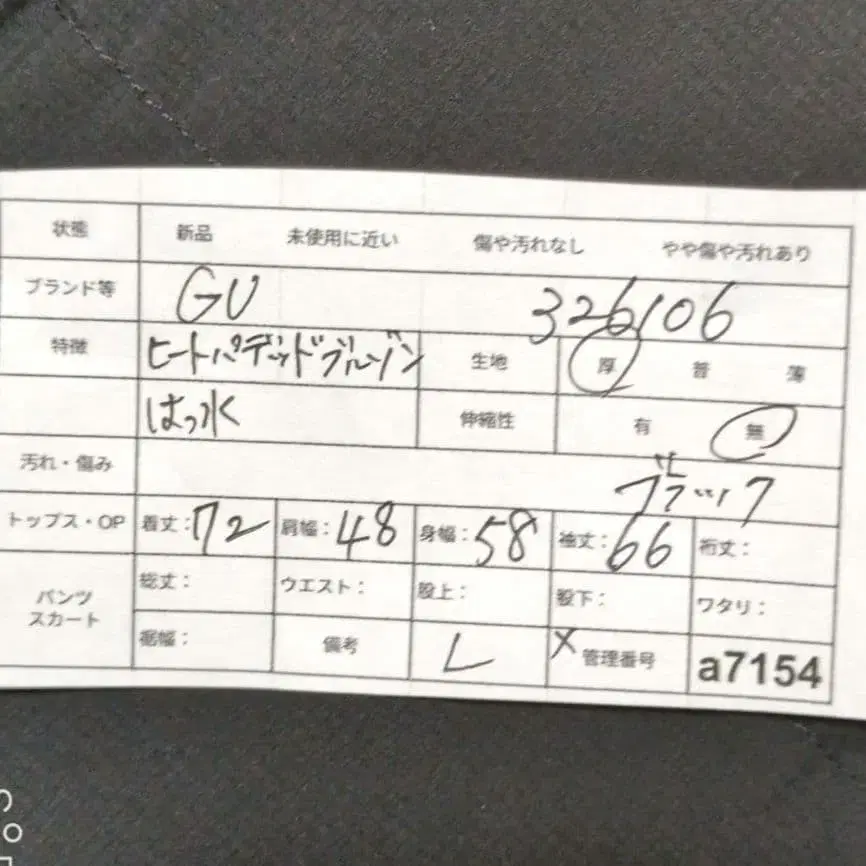 状態 新品 未使用に近い 傷や汚れなし やや傷や汚れあり
ブランド等 GU 326106
特徴 ヒートパデッドブルゾン 生地 厚 普 薄
はっ水 伸縮性 有 無
汚れ・傷み ブラック
トップス・OP 着丈:72 肩幅:48 身幅:58 袖丈:66 裄丈:
パンツ スカート 総丈: ウエスト: 股上: 股下: ワタリ:
裾幅: 備考 L X 管理番号 a7154